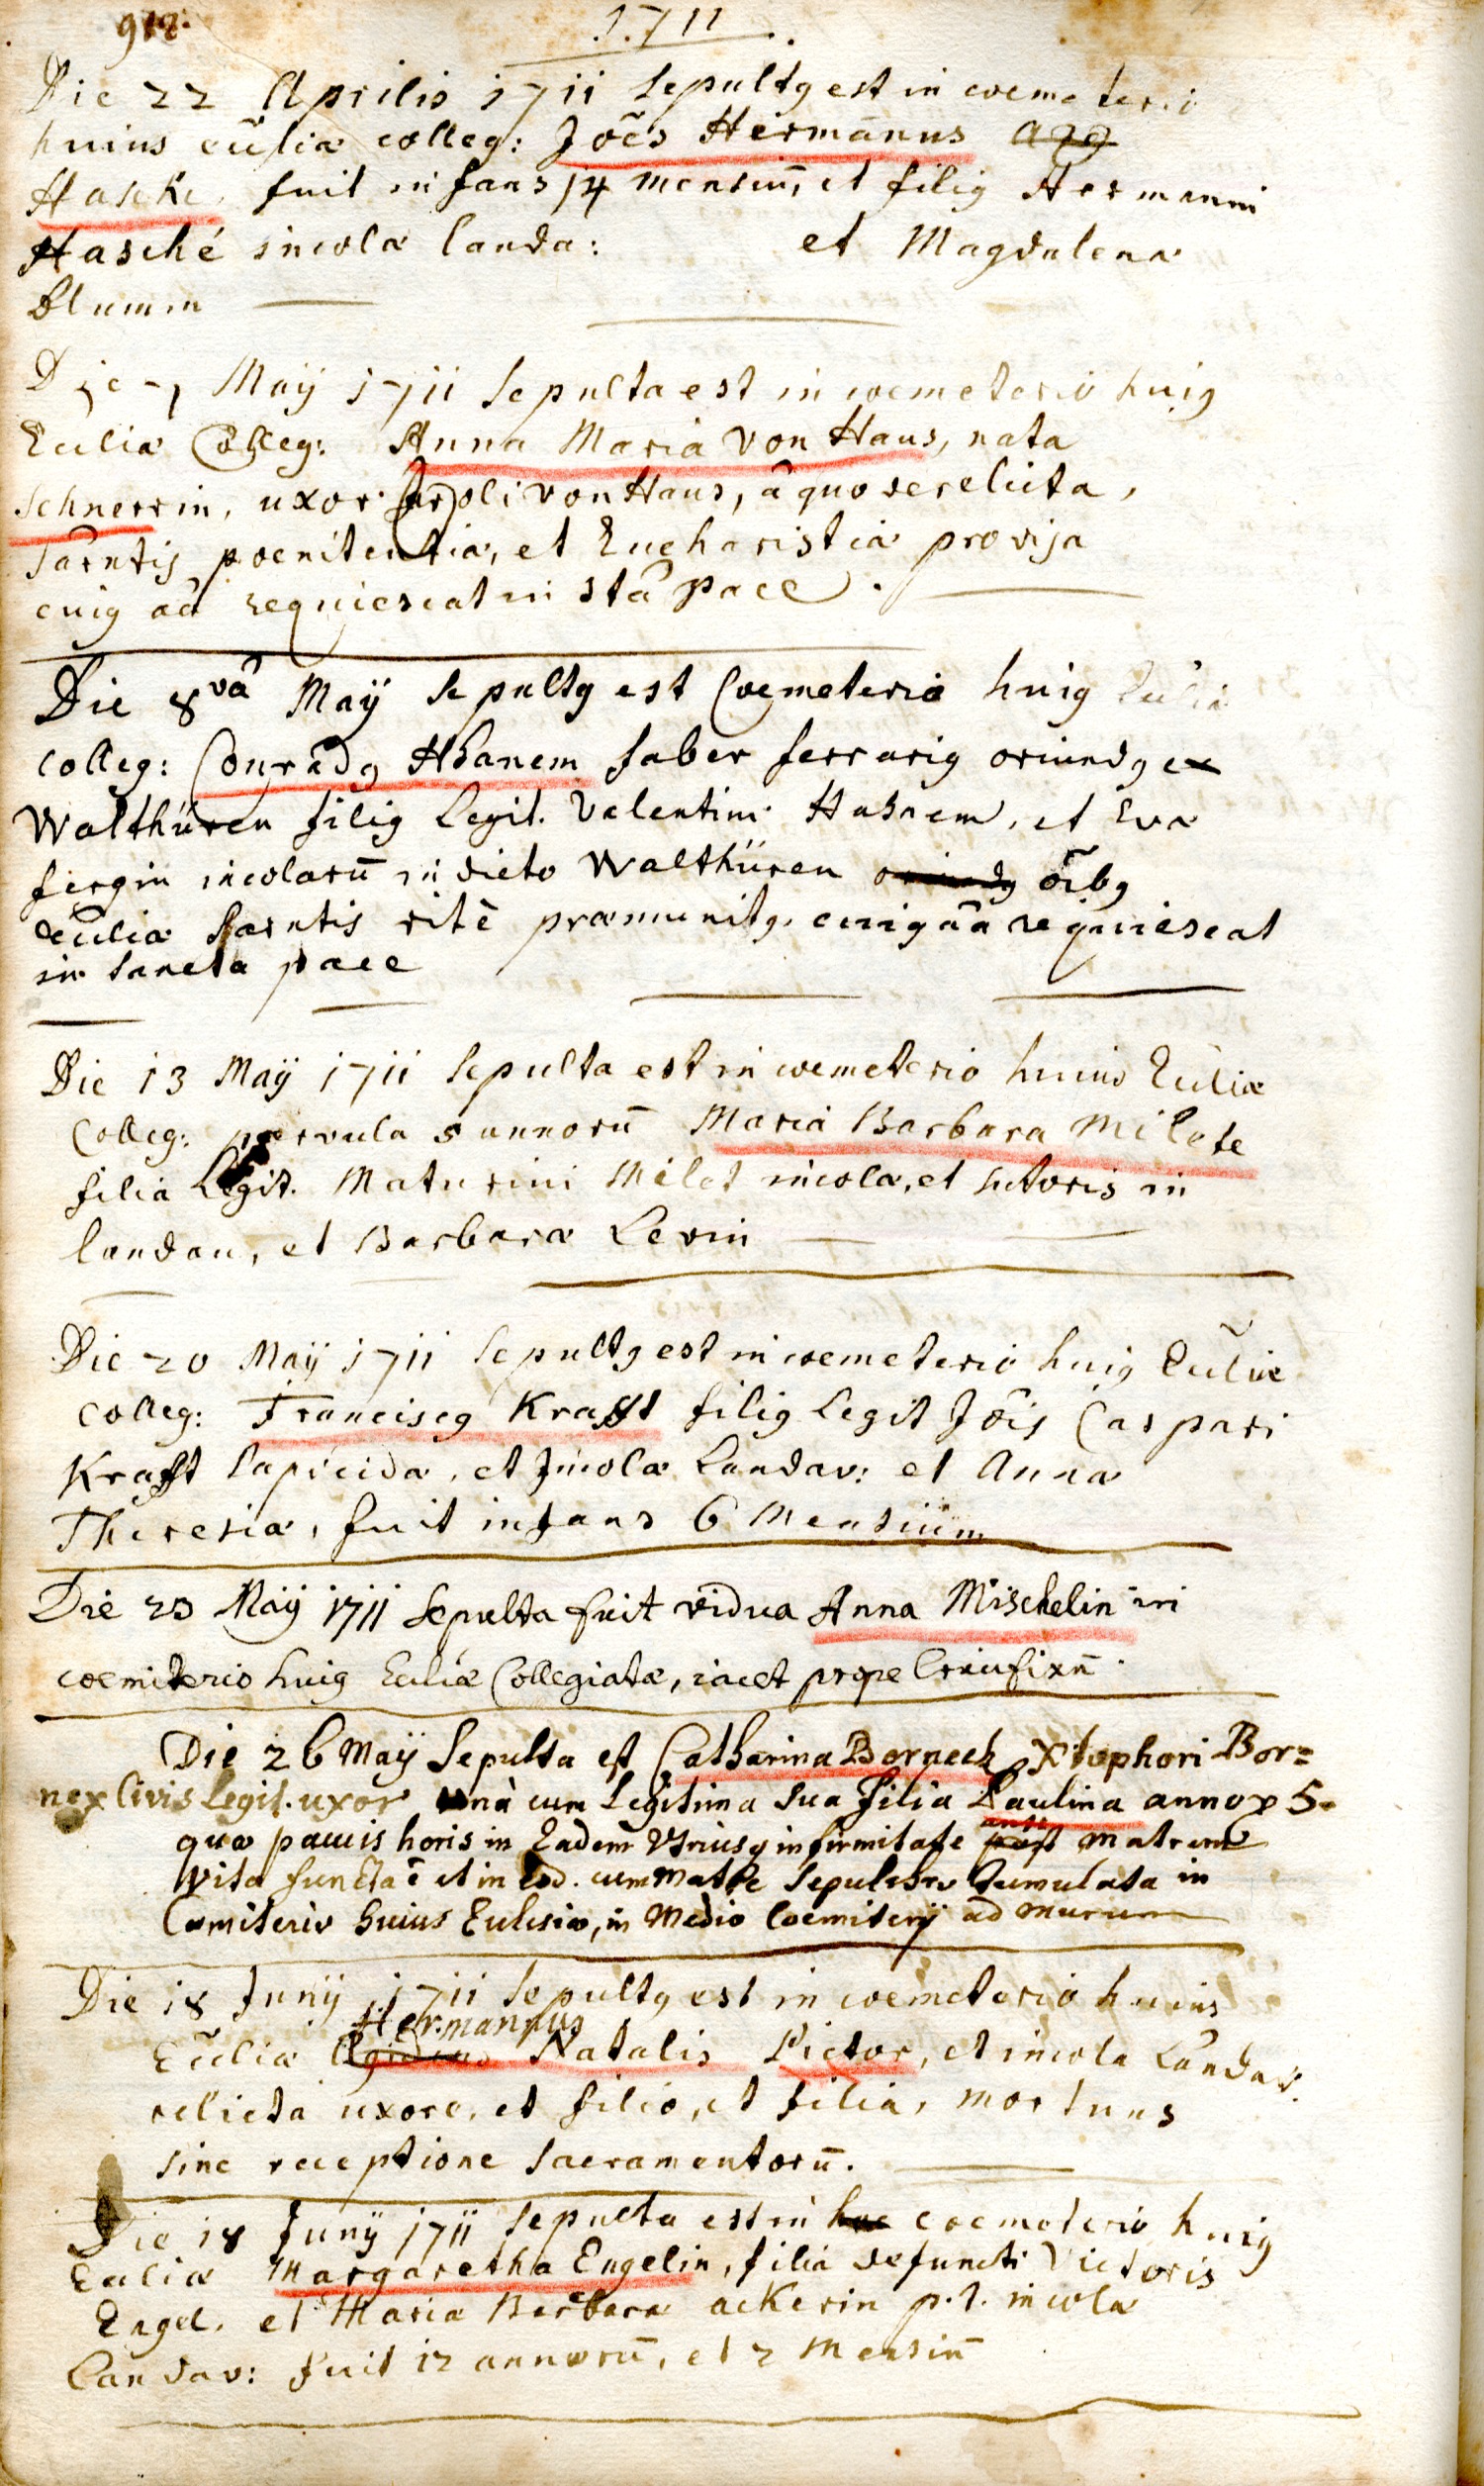 912.
1711.
Die 22 Aprilis 1711 sepultq est in coemeteri
huius eccliæ colleg: Jões Hermanus
Hasché, fuit infans 14 mensiū, et filiq Hermanni
Hasché incolæ landa: et Magdalena
Blumin
Die 7 Maÿ 1711 sepulta est in coemeterio huiq
Ecclīæ Colleg: Anna Maria von Haus, nata
Schnerrin, uxor von Haus, à quo derelicta,
Sacrntis poenitentiæ, et Eucharistiæ provisa
cuiq aā requiescat in stā pace.
Die 8vâ Maÿ sepultq est Coemeterio huiq Eccliæ
colleg: Conradq Hhanem faber ferrariq oriundq ex
Walthüren filiq Legit. Valentini Hahnem, et Eva
fergin incolarū in dicto Walthüren oriundq õibq
Eccliæ Sacrntis ritè præmunitq. cuiq aā requiescat
in sancta pace
Die 13 Maÿ 1711 sepulta est in coemeterio huius Eccliæ
Colleg: parvula 5 annorū Maria Barbara Milete
filia Legit. Maturini Milet incolæ, et sutoris in
landau, et Barbaræ Levin
Die 20 Maÿ 1711 sepultq est in coemeterio huiq Eccliæ
colleg: Franciscq Krafft filiq Legit Jōis Caspari
Krafft lapicidæ, et Jncolæ Landav: et Anna
Theresiæ, fuit infans 6 Mensiūm
Die 23 Maÿ 1711 sepulta fuit vidua Anna Mischelin in
coemiterio huiq Eccliæ Collegiatæ, iacet prope Crucifixū.
Die 26 Maÿ Sepulta est Catharina Borneck Xtophori Bor=
nex Civis Legit. uxor unà cum Legitima sua filia Paulina 5.
quæ paucis horis in Eadem infirmitate post ante matrem
vita functa ē et in eod. cum matre sepulchro tumulata in
Cœmiterio huius Eclesiæ, in Medio Coemiterÿ ad murum
Die 18 Junÿ 1711 sepultq est in coemeterio huius
Hermannus
Eccliæ Natalis Pictor, et incola Landav:
relicta uxore, et filio, et filia, mortuus
sine receptione sacramentorū.
Die 18 Junÿ 1711 sepulta est in hac coemeterio huiq
Eccliæ Margaretha Engelin, filia defuncti Victoris
Engel, et Maria Barbara ackerin p.t. incola
Landav: fuit 12 annorū, et 2 Mensiū